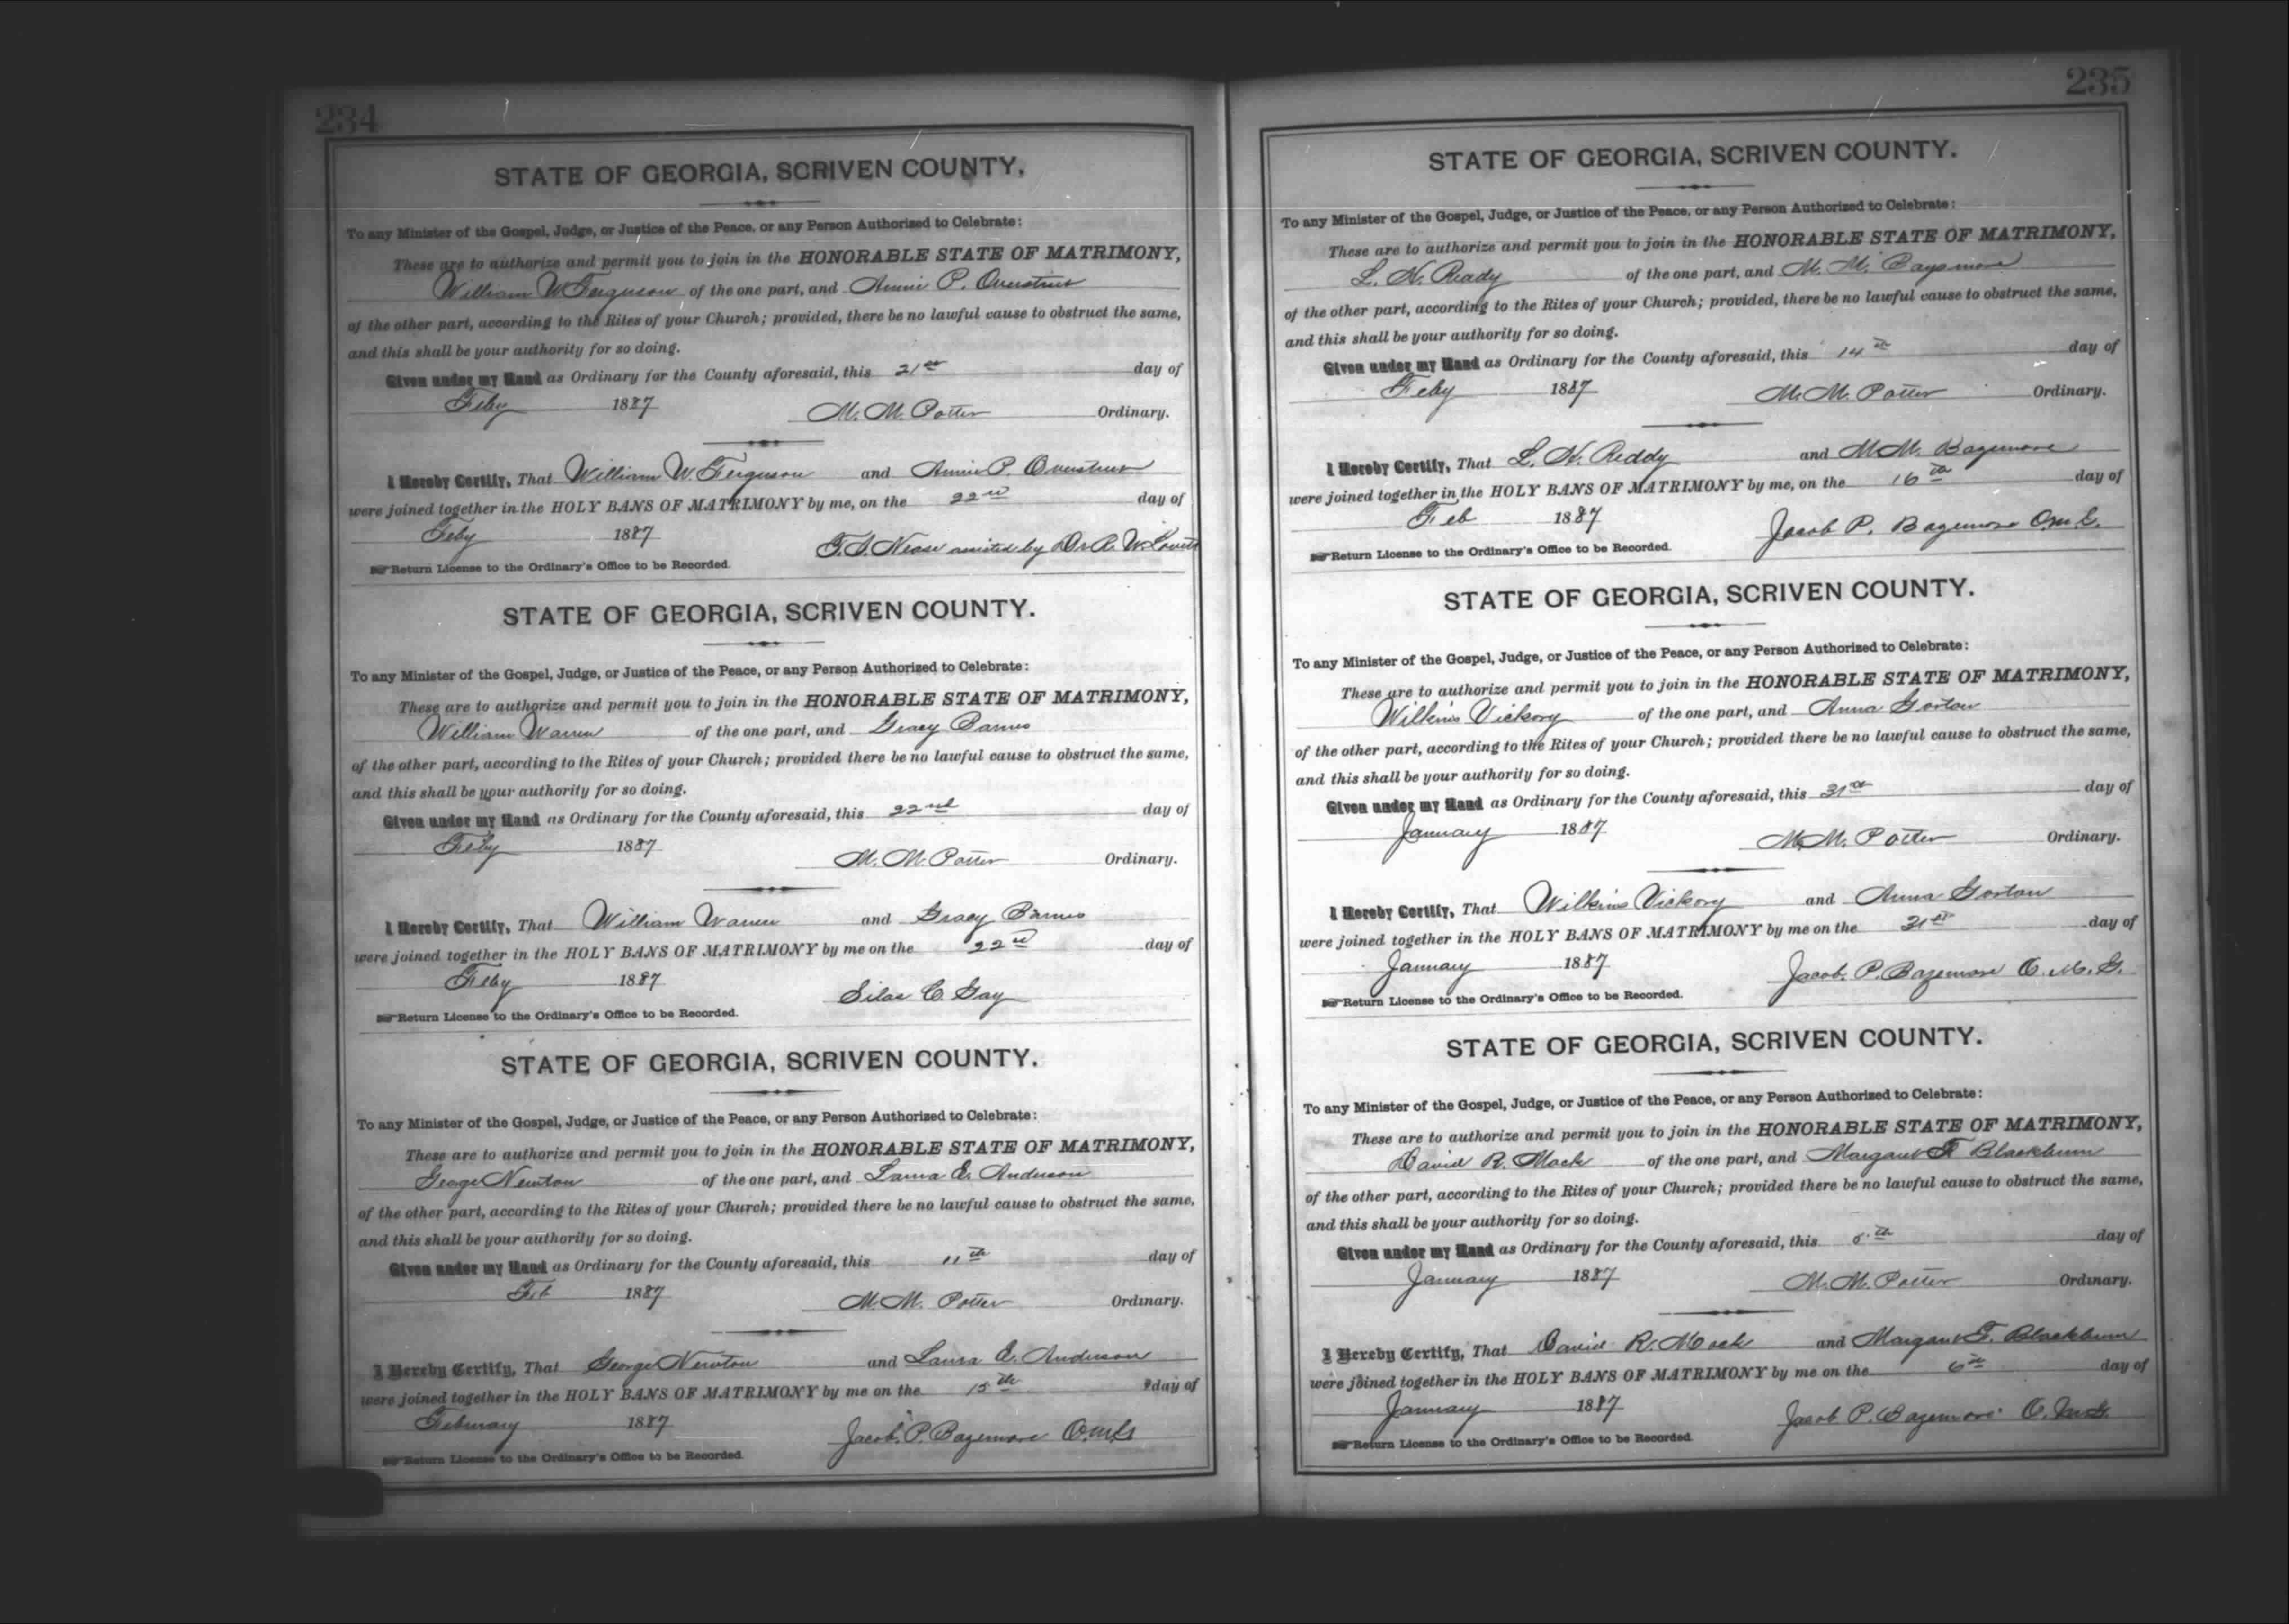 234
STATE OF GEORGIA, SCRIVEN COUNTY,
To any Minister of the Gospel, Judge, or Justice of the Peace, or any Person Authorized to Celebrate:
These are to authorize and permit you to join in the HONORABLE STATE OF MATRIMONY,
William W Ferguson of the one part, and Annie P. Overstreet
of the other part, according to the Rites of your Church; provided, there be no lawful cause to obstruct the same,
and this shall be your authority for so doing.
Given under my Hand as Ordinary for the County aforesaid, this 21st day of
Feby 1887 M. M. Potter Ordinary.
I Hereby Certify, That William W. Ferguson and Annie P. Overstreet
were joined together in the HOLY BANS OF MATRIMONY by me, on the 22nd day of
Feby 1887 assisted by Dr R. W. Lovett
Return License to the Ordinary's Office to be Recorded.
STATE OF GEORGIA, SCRIVEN COUNTY.
To any Minister of the Gospel, Judge, or Justice of the Peace, or any Person Authorized to Celebrate:
These are to authorize and permit you to join in the HONORABLE STATE OF MATRIMONY,
William Warren of the one part, and Gracy Barnes
of the other part, according to the Rites of your Church; provided there be no lawful cause to obstruct the same,
and this shall be your authority for so doing.
Given under my Hand as Ordinary for the County aforesaid, this 22nd day of
Feby 1887 M. M. Potter Ordinary.
I Hereby Certify, That William Warren and Gracy Barnes
were joined together in the HOLY BANS OF MATRIMONY by me on the 22nd day of
Feby 1887 Silas C Gay
Return License to the Ordinary's Office to be Recorded.
STATE OF GEORGIA, SCRIVEN COUNTY.
To any Minister of the Gospel, Judge, or Justice of the Peace, or any Person Authorized to Celebrate:
These are to authorize and permit you to join in the HONORABLE STATE OF MATRIMONY,
George Newton of the one part, and Laura E. Anderson
of the other part, according to the Rites of your Church; provided there be no lawful cause to obstruct the same,
and this shall be your authority for so doing.
Given under my Hand as Ordinary for the County aforesaid, this 11th day of
Feb 1887 M. M. Potter Ordinary.
I Hereby Certify, That George Newton and Laura E. Anderson
were joined together in the HOLY BANS OF MATRIMONY by me on the 15th day of
February 1887 Jacob. P. Bazemore O.M.G
Return License to the Ordinary's Office to be Recorded.
235
STATE OF GEORGIA, SCRIVEN COUNTY.
To any Minister of the Gospel, Judge, or Justice of the Peace, or any Person Authorized to Celebrate:
These are to authorize and permit you to join in the HONORABLE STATE OF MATRIMONY,
L. H. Ready of the one part, and M. M. Baysmore
of the other part, according to the Rites of your Church; provided, there be no lawful cause to obstruct the same,
and this shall be your authority for so doing.
Given under my Hand as Ordinary for the County aforesaid, this 14th day of
Feby 1887 M. M. Potter Ordinary.
I Hereby Certify, That L. H. Reddy and M. M. Bazemore
were joined together in the HOLY BANS OF MATRIMONY by me, on the 16th day of
Feb 1887 Jacob P. Bazemore O.M.G.
Return License to the Ordinary's Office to be Recorded.
STATE OF GEORGIA, SCRIVEN COUNTY.
To any Minister of the Gospel, Judge, or Justice of the Peace, or any Person Authorized to Celebrate:
These are to authorize and permit you to join in the HONORABLE STATE OF MATRIMONY,
Wilkins Vickory of the one part, and Anna Gorton
of the other part, according to the Rites of your Church; provided there be no lawful cause to obstruct the same,
and this shall be your authority for so doing.
Given under my Hand as Ordinary for the County aforesaid, this 31st day of
January 1887 M. M. Potter Ordinary.
I Hereby Certify, That Wilkins Vickory and Anna Gorton
were joined together in the HOLY BANS OF MATRIMONY by me on the 31st day of
January 1887 Jacob. P. Bazemore O. M. G.
Return License to the Ordinary's Office to be Recorded.
STATE OF GEORGIA, SCRIVEN COUNTY.
To any Minister of the Gospel, Judge, or Justice of the Peace, or any Person Authorized to Celebrate:
These are to authorize and permit you to join in the HONORABLE STATE OF MATRIMONY,
David R. Mock of the one part, and Margaret F Blackburn
of the other part, according to the Rites of your Church; provided there be no lawful cause to obstruct the same,
and this shall be your authority for so doing.
Given under my Hand as Ordinary for the County aforesaid, this day of
January 1887 M. M. Potter Ordinary.
I Hereby Certify, That David R. Mock and Margaret F. Blackburn
were joined together in the HOLY BANS OF MATRIMONY by me on the 6th day of
January 1887 Jacob P. Bazemore O. M. G.
Return License to the Ordinary's Office to be Recorded.